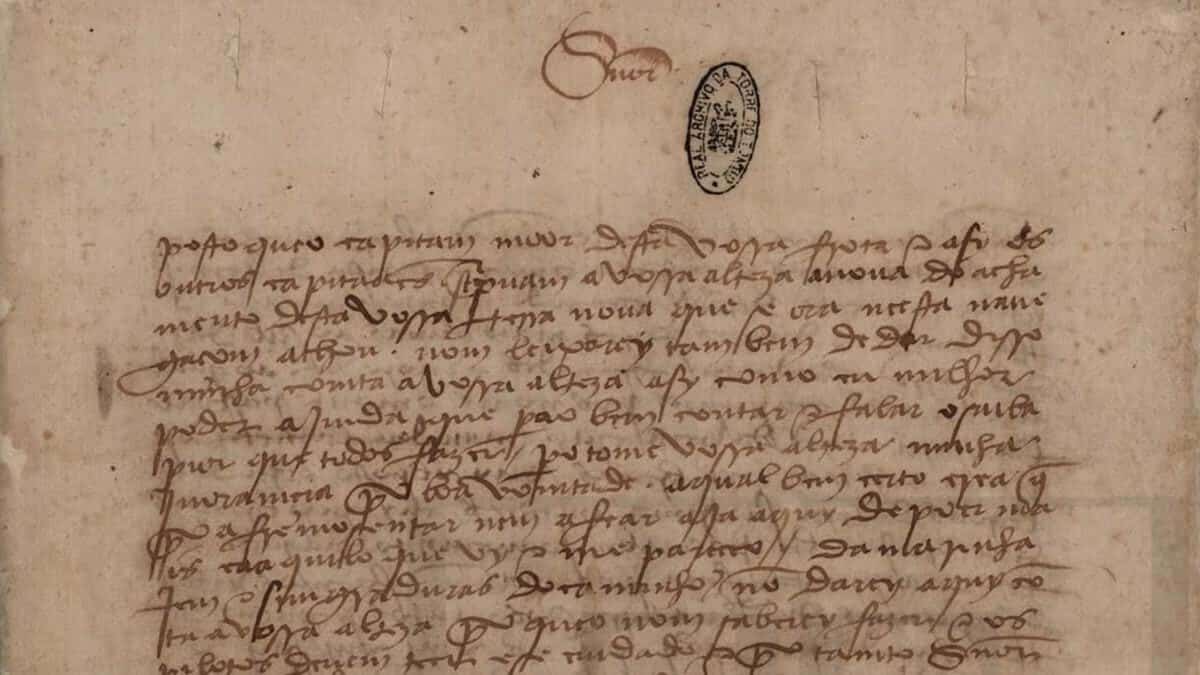 Snor
REAL ARCHIVO DA TORRE DO TOMBO
posto queo capitam moor desta vossa frota e asy os
outros capitaães screpuam a vossa alteza anoua do acha
mento desta vossa terra noua que se ora neesta naue
gaçom achou . nom leixarey tambem de dar disso
minha comta avossa alteza asy como eu milhor
poder aimda que pera o bem contar e falar o saiba
pior que todos fazer / pero tome vossa alteza minha
jnoramçia por boa vomtade . aqual bem certo crea q̃
por afremosentar nem afear aja aquy de poer ma
is caaquilo que vy e me pareçeo / da marinha
jem e simgraduras do caminho / nõ darey aquy cõ
ta avossa alteza por queo nom saberey fazer e os
pilotos deuem teer ese cuidado e por tamto Snor